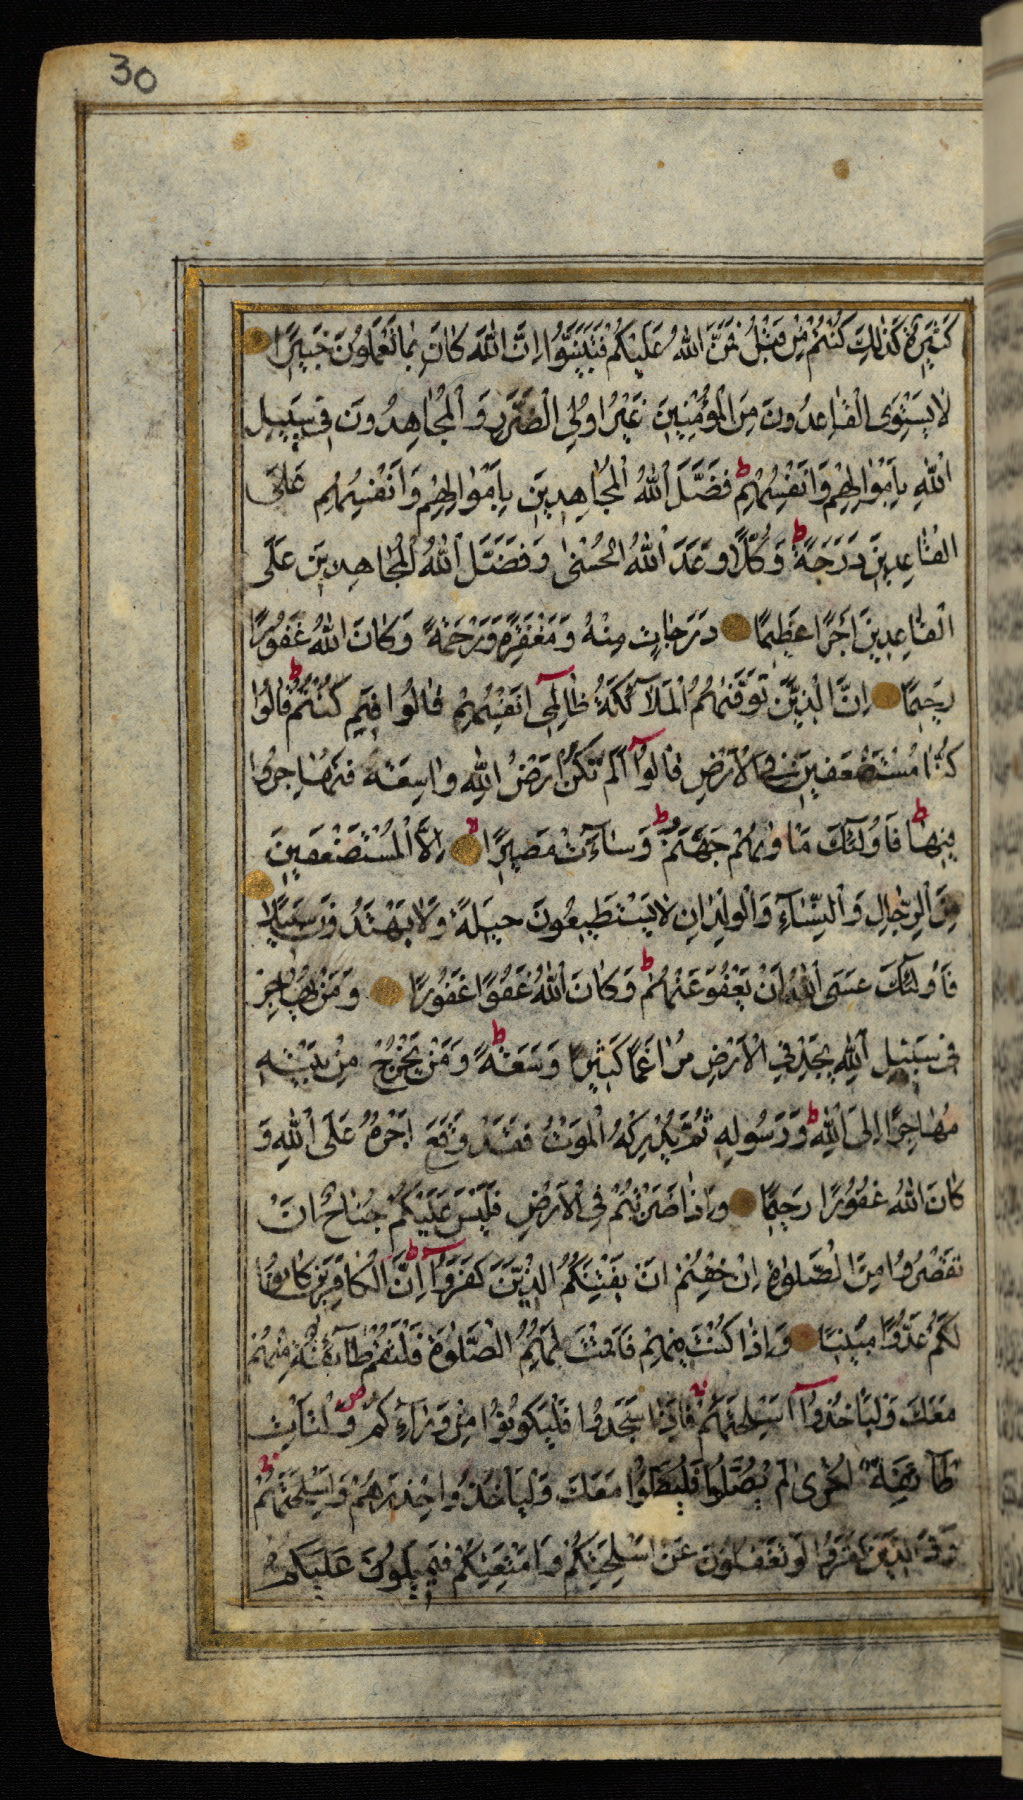 30
كَثِيرَةٌ كَذٰلِكَ كُنْتُمْ مِنْ قَبْلُ فَمَنَّ اللّٰهُ عَلَيْكُمْ فَتَبَيَّنُوا اِنَّ اللّٰهَ كَانَ بِمَا تَعْمَلُونَ خَبِيرًا
لَا يَسْتَوِى الْقَاعِدُونَ مِنَ الْمُؤْمِنِينَ غَيْرُ اُولِى الضَّرَرِ وَالْمُجَاهِدُونَ فِى سَبِيلِ
اللّٰهِ بِاَمْوَالِهِمْ وَاَنْفُسِهِمْ ط فَضَّلَ اللّٰهُ الْمُجَاهِدِينَ بِاَمْوَالِهِمْ وَاَنْفُسِهِمْ عَلَى
الْقَاعِدِينَ دَرَجَةً ط وَكُلًّا وَعَدَ اللّٰهُ الْحُسْنٰى وَفَضَّلَ اللّٰهُ الْمُجَاهِدِينَ عَلَى
الْقَاعِدِينَ اَجْرًا عَظِيمًا دَرَجَاتٍ مِنْهُ وَمَغْفِرَةً وَرَحْمَةً وَكَانَ اللّٰهُ غَفُورًا
رَحِيمًا اِنَّ الَّذِينَ تَوَفّٰيهُمُ الْمَلَآئِكَةُ ظَالِمِىٓ اَنْفُسِهِمْ قَالُوا فِيمَ كُنْتُمْ ط قَالُوا
كُنَّا مُسْتَضْعَفِينَ فِى الْاَرْضِ قَالُوٓا اَلَمْ تَكُنْ اَرْضُ اللّٰهِ وَاسِعَةً فَتُهَاجِرُوا
فِيهَا ط فَاُولٰٓئِكَ مَاْوٰيهُمْ جَهَنَّمُ ط وَسَآءَتْ مَصِيرًا لا اِلَّا الْمُسْتَضْعَفِينَ
مِنَ الرِّجَالِ وَالنِّسَآءِ وَالْوِلْدَانِ لَا يَسْتَطِيعُونَ حِيلَةً وَلَا يَهْتَدُونَ سَبِيلًا
فَاُولٰٓئِكَ عَسَى اللّٰهُ اَنْ يَعْفُوَ عَنْهُمْ ط وَكَانَ اللّٰهُ عَفُوًّا غَفُورًا وَمَنْ يُهَاجِرْ
فِى سَبِيلِ اللّٰهِ يَجِدْ فِى الْاَرْضِ مُرَاغَمًا كَثِيرًا وَسَعَةً ط وَمَنْ يَخْرُجْ مِنْ بَيْتِهِ
مُهَاجِرًا اِلَى اللّٰهِ ط وَرَسُولِهِ ثُمَّ يُدْرِكْهُ الْمَوْتُ فَقَدْ وَقَعَ اَجْرُهُ عَلَى اللّٰهِ وَ
كَانَ اللّٰهُ غَفُورًا رَحِيمًا وَاِذَا ضَرَبْتُمْ فِى الْاَرْضِ فَلَيْسَ عَلَيْكُمْ جُنَاحٌ اَنْ
تَقْصُرُوا مِنَ الصَّلٰوةِ اِنْ خِفْتُمْ اَنْ يَفْتِنَكُمُ الَّذِينَ كَفَرُوٓا ط اِنَّ الْكَافِرِينَ كَانُوا
لَكُمْ عَدُوًّا مُبِينًا وَاِذَا كُنْتَ فِيهِمْ فَاَقَمْتَ لَهُمُ الصَّلٰوةَ فَلْتَقُمْ طَآئِفَةٌ مِنْهُمْ
مَعَكَ وَلْيَاْخُذُوٓا اَسْلِحَتَهُمْ فَاِذَا سَجَدُوا فَلْيَكُونُوا مِنْ وَرَآئِكُمْ ص وَلْتَاْتِ
طَآئِفَةٌ اُخْرٰى لَمْ يُصَلُّوا فَلْيُصَلُّوا مَعَكَ وَلْيَاْخُذُوا حِذْرَهُمْ وَاَسْلِحَتَهُمْ
وَدَّ الَّذِينَ كَفَرُوا لَوْ تَغْفُلُونَ عَنْ اَسْلِحَتِكُمْ وَاَمْتِعَتِكُمْ فَيَمِيلُونَ عَلَيْكُمْ